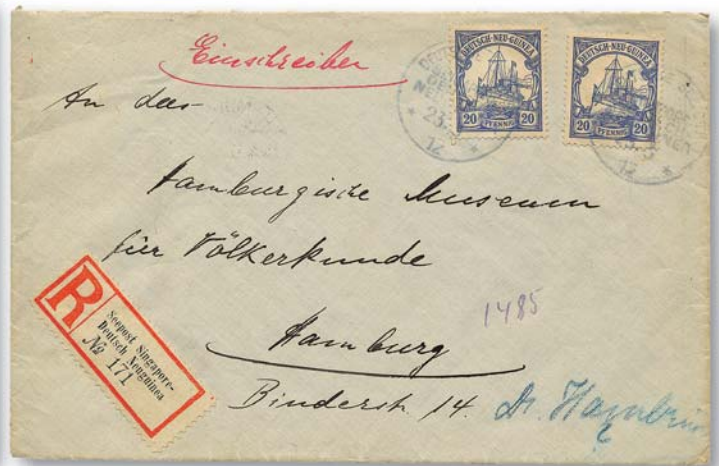 Einschreiben
DEUTSCH-NEU-GUINEA
20 PFENNIG 20
DEUTSCH-NEU-GUINEA
20 PFENNIG 20
23.
12
12
An das
Hamburgische Museum
für Völkerkunde
Hamburg
Binderstr. 14.
1485
R
Seepost Singapore-
Deutsch Neuguinea
№ 171
Dr.